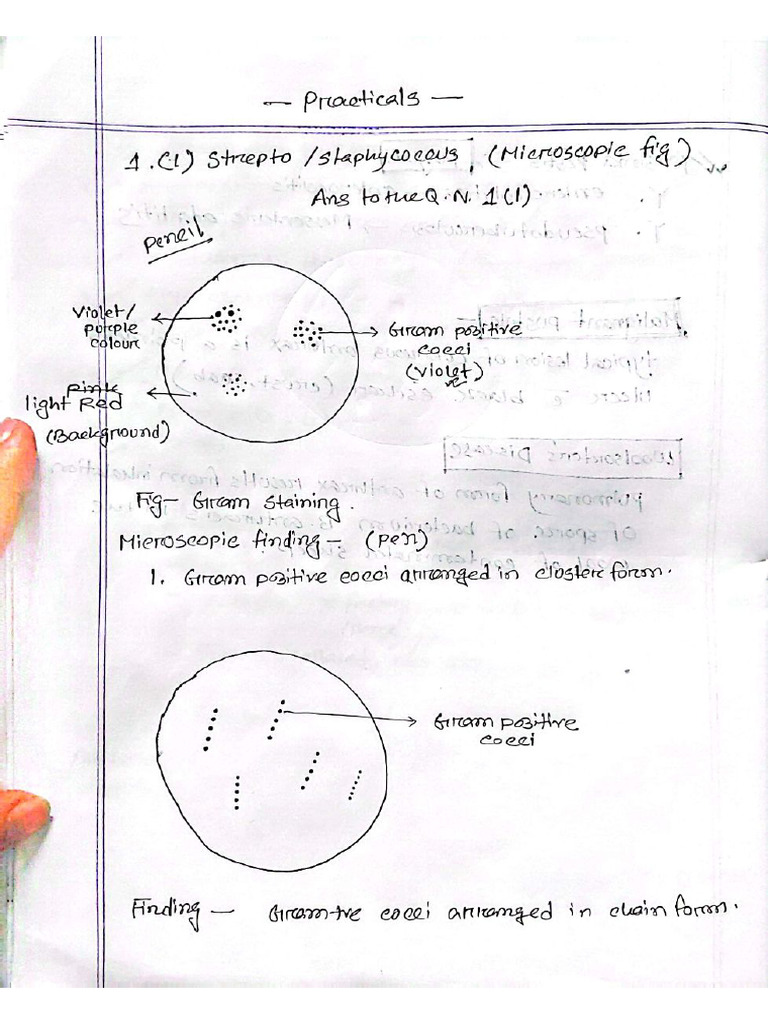 — Practicals —
1. (1) Strepto / Staphycocous, (Microscopic fig)
Ans to the Q. N. 1 (1)
Pencil
Violet/
purple
colour
Gram positive
cocci
(violet)
Pink
light Red
(Background)
Fig- Gram Staining.
Microscopic finding - (pen)
1. Gram positive cocci arranged in cluster form.
Gram positive
cocci
Finding - Gram +ve cocci arranged in chain form.